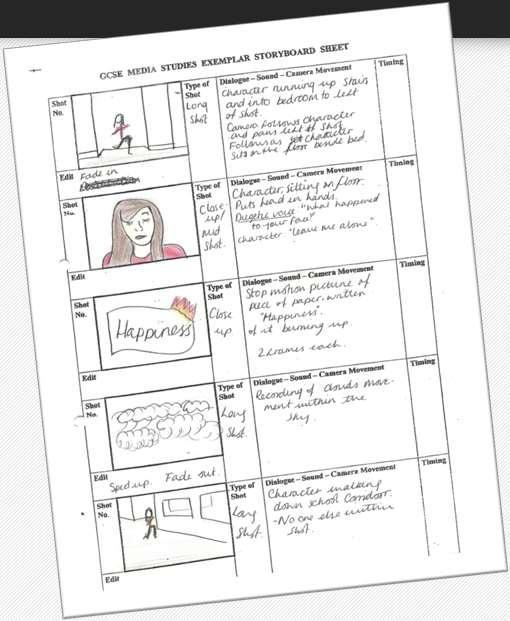 GCSE MEDIA STUDIES EXEMPLAR STORYBOARD SHEET
Shot No.
Type of Shot
Long Shot
Dialogue – Sound – Camera Movement
Character running up stairs
and into bedroom to left
of shot.
Camera follows character
and pans left of shot
Follows as character
sits on the floor beside bed.
Timing
Edit Fade in
Shot No.
Type of Shot
Close up/ Mid Shot.
Dialogue – Sound – Camera Movement
Character, sitting on floor.
Puts head in hands.
Diegetic voice "What happened
to your face"
character "leave me alone".
Timing
Edit
Shot No.
Happiness
Type of Shot
Close up
Dialogue – Sound – Camera Movement
Stop motion picture of
piece of paper, written
"Happiness".
of it burning up.
2 frames each.
Timing
Edit
Shot No.
Type of Shot
Long Shot.
Dialogue – Sound – Camera Movement
Recording of clouds move-
ment within the
sky.
Timing
Edit Sped up. Fade out.
Shot No.
Type of Shot
Long Shot.
Dialogue – Sound – Camera Movement
Character walking
down school corridoor.
-No one else within
shot.
Timing
Edit